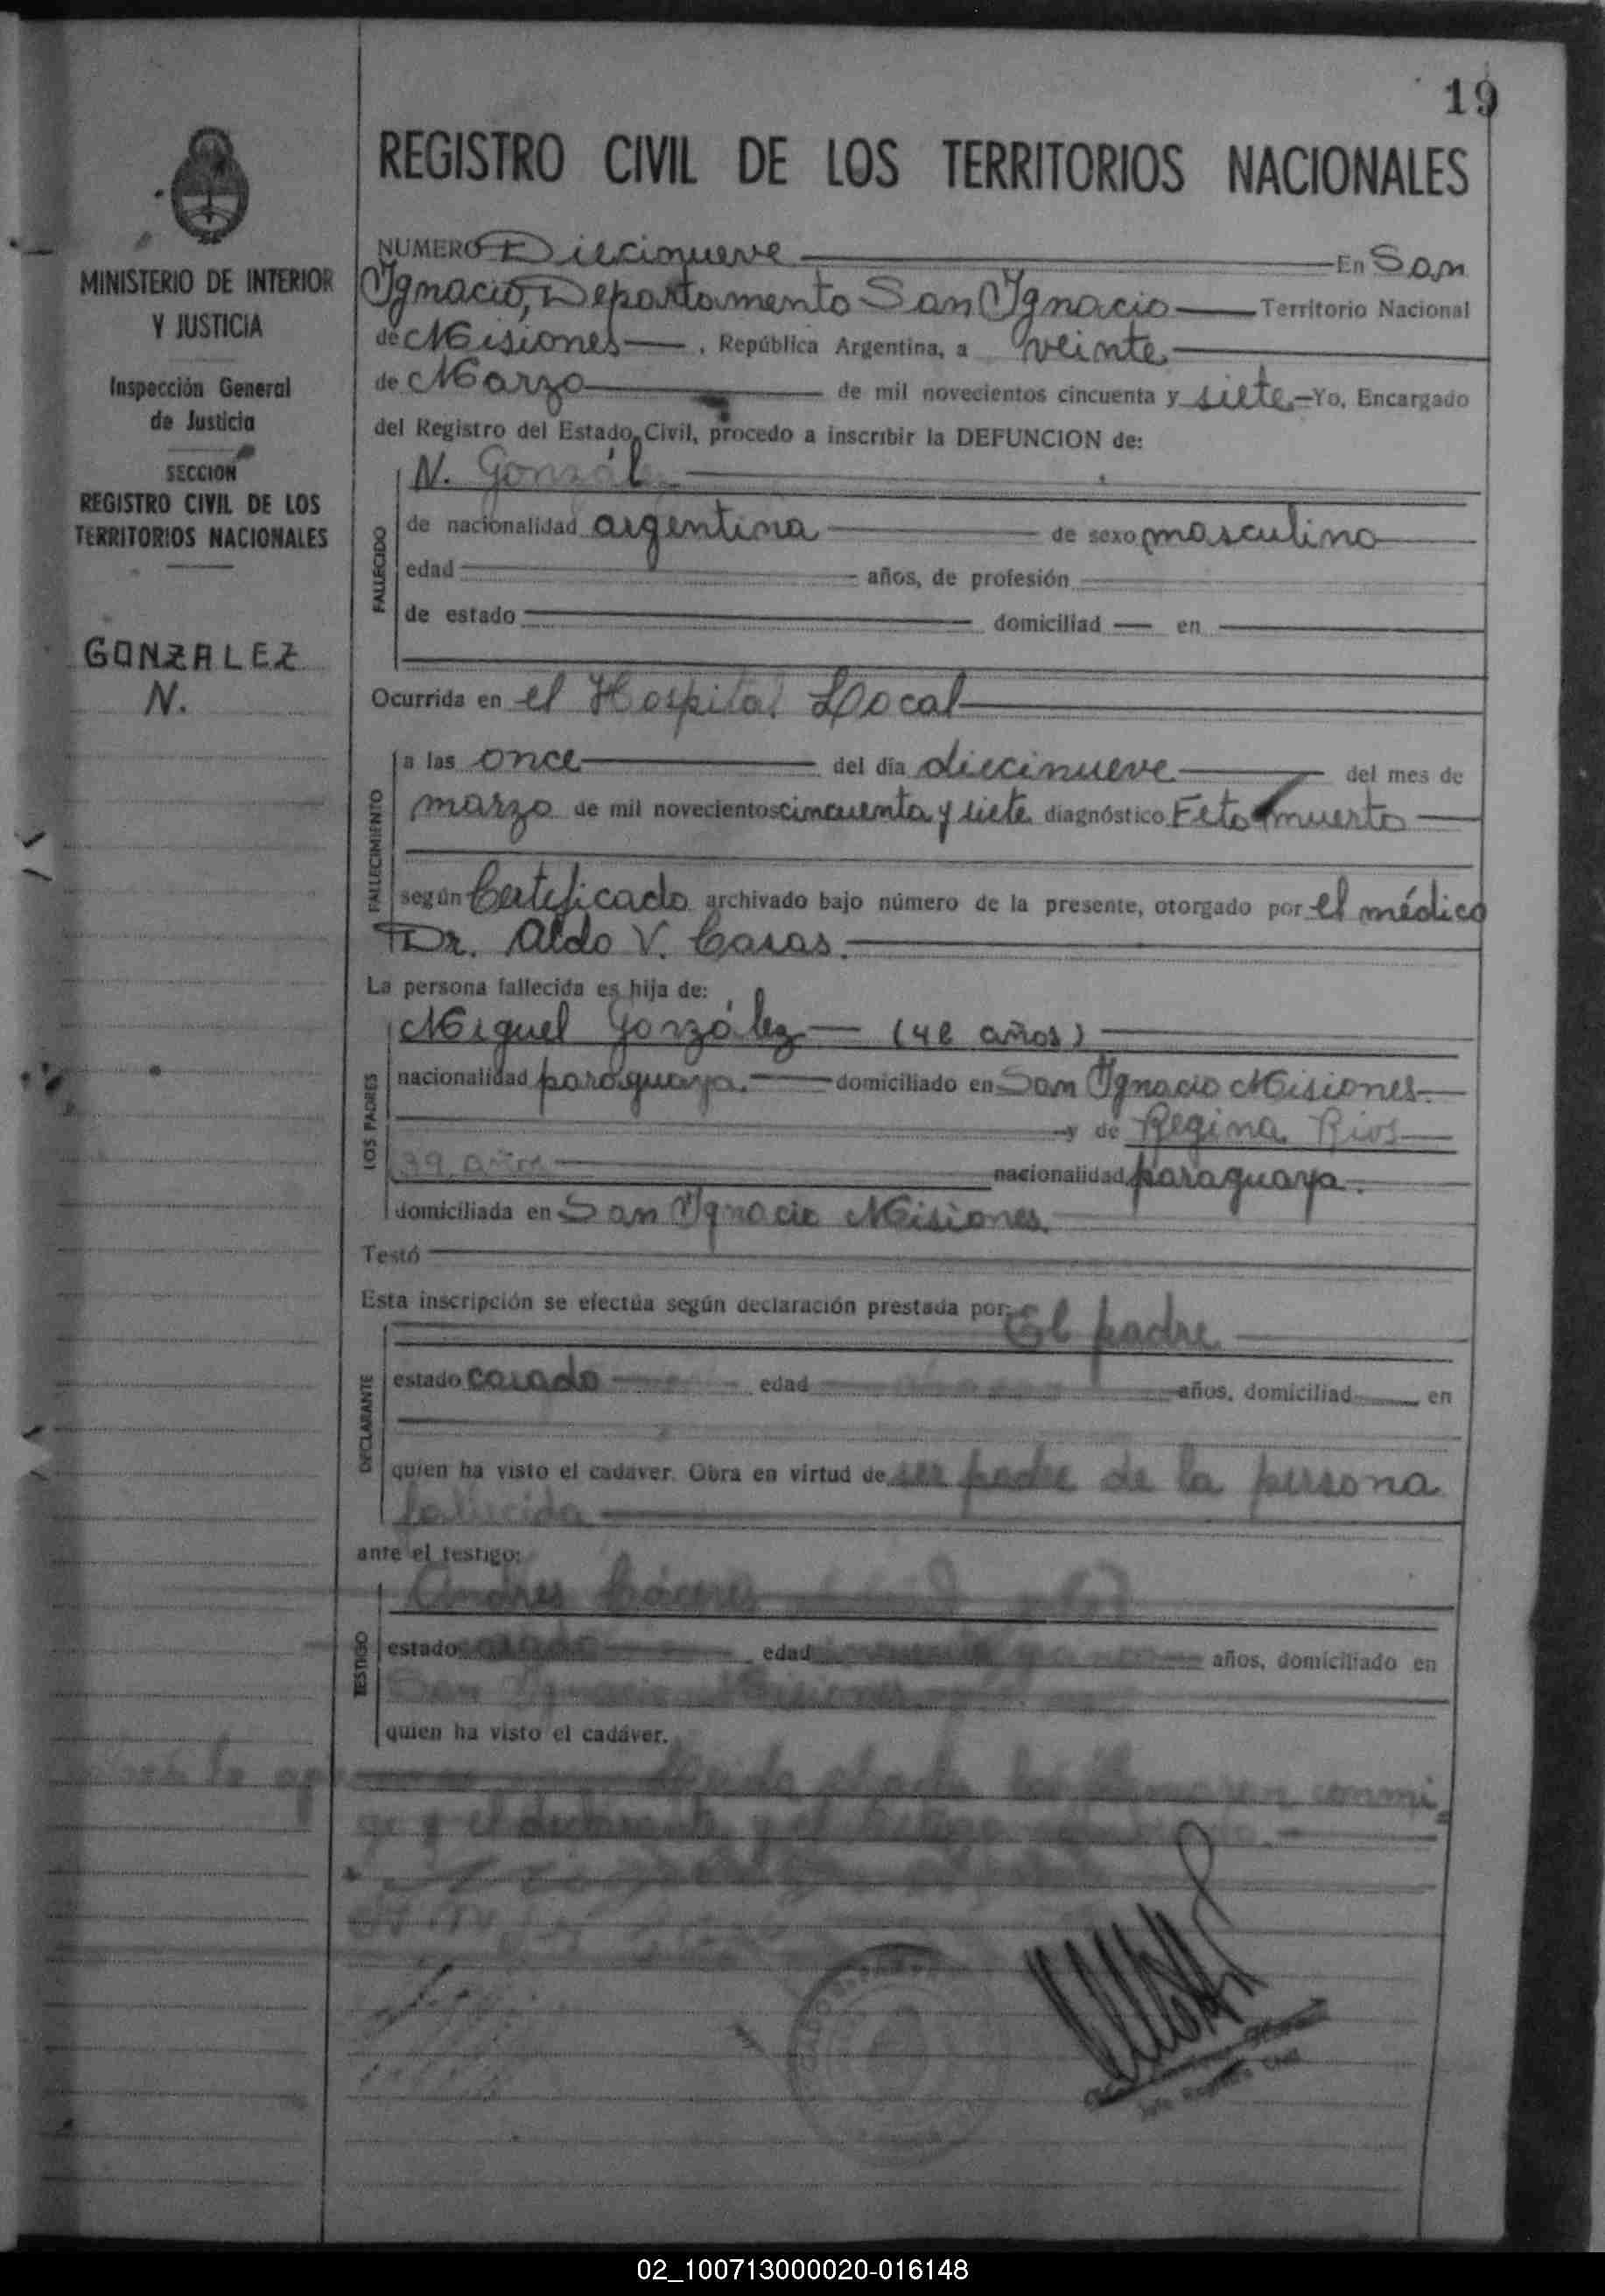 19
REGISTRO CIVIL DE LOS TERRITORIOS NACIONALES
MINISTERIO DE INTERIOR
Y JUSTICIA
Inspección General
de Justicia
SECCION
REGISTRO CIVIL DE LOS
TERRITORIOS NACIONALES
GONZALEZ
N.
NUMERO Diecinueve En San
Ignacio, Departamento San Ignacio Territorio Nacional
de Misiones, República Argentina, a veinte
de Marzo de mil novecientos cincuenta y siete Yo, Encargado
del Registro del Estado Civil, procedo a inscribir la DEFUNCION de:
FALLECIDO
N. Gonzále
de nacionalidad argentina de sexo masculino
edad años, de profesión
de estado domiciliad en
Ocurrida en el Hospital Local
FALLECIMIENTO
a las once del día diecinueve del mes de
marzo de mil novecientos cincuenta y siete diagnóstico Feto muerto
según Certificado archivado bajo número de la presente, otorgado por el médico
Dr. Aldo V. Casas.
La persona fallecida es hija de:
LOS PADRES
Miguel González (42 años)
nacionalidad paraguaya. domiciliado en San Ignacio Misiones
y de Regina Rios
39 años nacionalidad paraguaya.
domiciliada en San Ignacio Misiones.
Testó
Esta inscripción se efectúa según declaración prestada por: El padre
DECLARANTE
estado casado edad años, domiciliad en
quien ha visto el cadáver. Obra en virtud de ser padre de la persona
fallecida
ante el testigo:
TESTIGO
Andres Cáceres
estado casado edad años, domiciliado en
San Ignacio Misiones
quien ha visto el cadáver.
Leída el acta la firmaron conmi
go y el declarante y el testigo
02_100713000020-016148